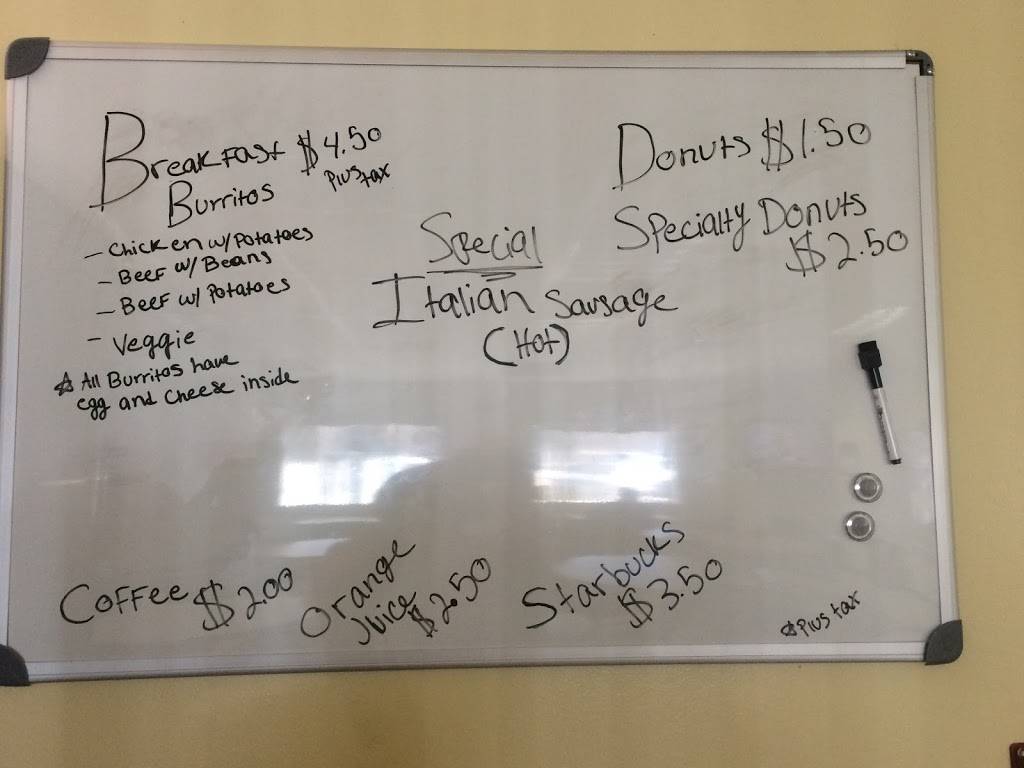 Breakfast $4.50
Burritos Plus tax
- Chicken w/Potatoes
- Beef w/ Beans
- Beef w/ Potatoes
- Veggie
☆ All Burritos have
egg and cheese inside
Special
Italian Sausage
(Hot)
Donuts $1.50
Specialty Donuts
$2.50
Coffee $2.00
Orange
Juice $2.50
Starbucks
$3.50
☆Plus tax